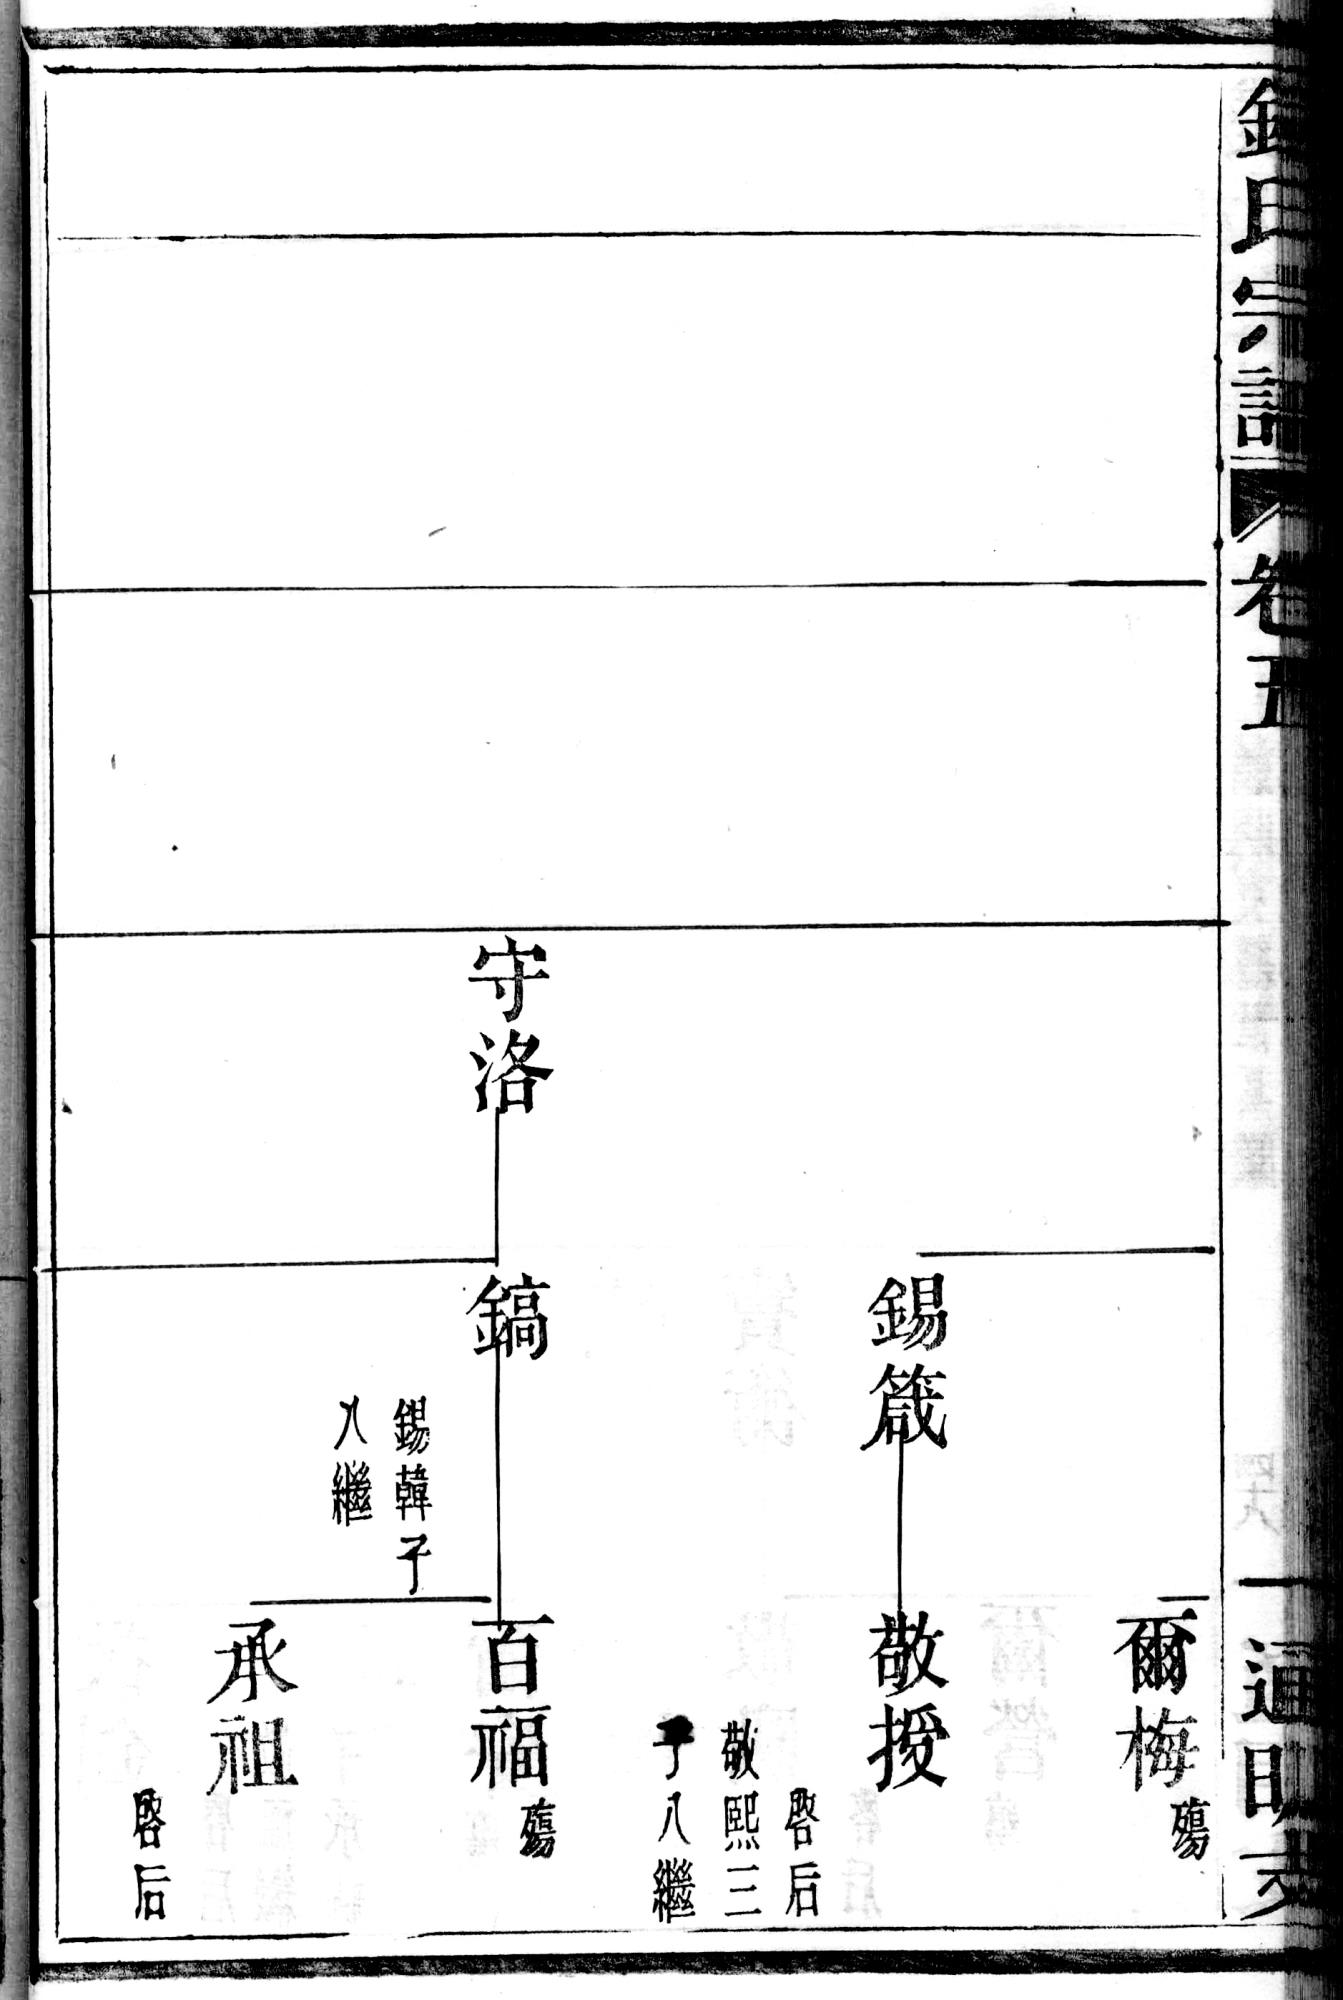 氏宗譜
卷五
通明支
爾梅
殤
錫箴
敬授
啓后
敬熙三
子入繼
守洛
鎬
百福
殤
錫韓子
入繼
承祖
啓后